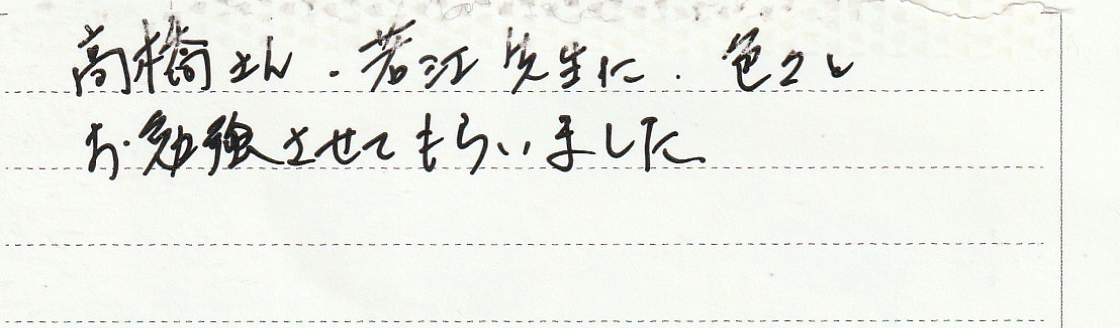 高橋さん、若江先生に、色々と
お勉強させてもらいました